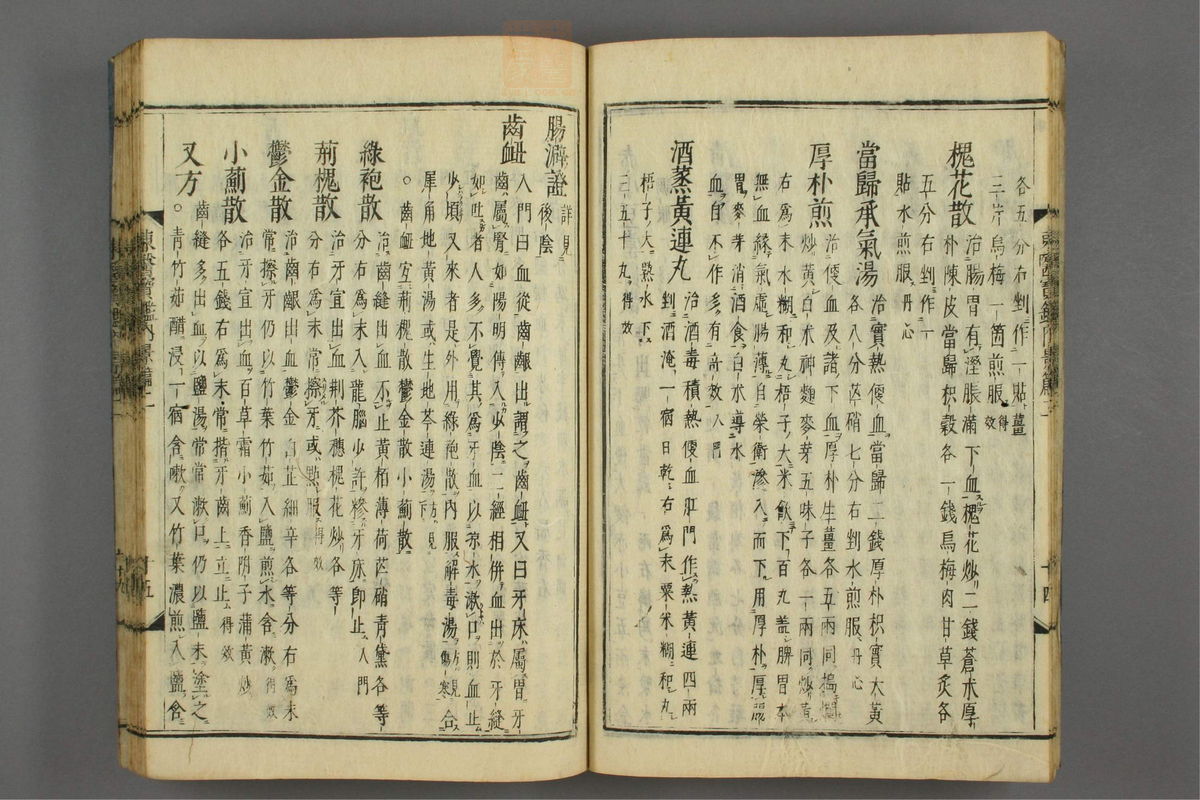 各五分右剉作一貼薑
三片烏梅一箇煎服得效
槐花散治腸胃有濕脹滿下血槐花炒二錢蒼朮厚
朴陳皮當歸枳殼各一錢烏梅肉甘草炙各
五分右剉作一
貼水煎服丹心
當歸承氣湯治實熱便血當歸二錢厚朴枳實大黃
各八分芒硝七分右剉水煎服丹心
厚朴煎治便血及諸下血厚朴生薑各五兩同搗爛
炒黃白朮神麴麥芽五味子各一兩同炒黃
右爲末水糊和丸梧子大米飮下百丸盖脾胃本
無血緣氣虛腸薄自榮衛滲入而下用厚朴厚腸
胃麥芽消酒食白朮導水
血自不作多有奇效入門
酒蒸黃連丸治酒毒積熱便血肛門作熱黃連四兩
剉酒淹一宿日乾右爲末粟米糊和丸
梧子大熟水下
三五十丸得效
腸澼證詳見後陰
齒衄入門曰血從齒齦出謂之齒衄又曰牙床屬胃牙
齒屬腎如陽明傳入少陰二經相併血出於牙縫
如吐者人多不覺其爲牙血以凉水漱口則血止
少頃又來者是外用綠袍散內服解毒湯方見傷寒合
犀角地黃湯或生地芩連湯方見下
○齒衄宜荊槐散鬱金散小薊散
綠袍散治齒縫出血不止黃栢薄荷芒硝靑黛各等
分右爲末入龍腦少許糝牙床卽止入門
荊槐散治牙宜出血荊芥穗槐花炒各等
分右爲末常擦牙或點服得效
鬱金散治齒齦出血鬱金白芷細辛各等分右爲末
常擦牙仍以竹葉竹茹入鹽煎水含漱得效
小薊散治牙宜出血百草霜小薊香附子蒲黃炒
各五錢右爲末常揩牙齒上立止得效
齒縫多出血以鹽湯常常漱口仍以鹽末塗之
又方○靑竹茹醋浸一宿含嗽又竹葉濃煎入鹽含
東醫寶鑑內景篇二
十四